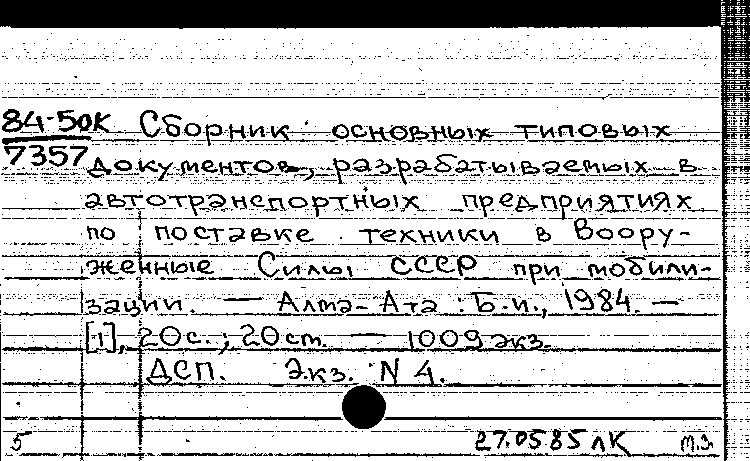 84-50К Сборник основных типовых
7357 документов, разрабатываемых в
автотранспортных предприятиях
по поставке техники в Воору-
женные Силы СССР при мобили-
зации. — Алма-Ата : Б.и., 1984. —
[1], 20с.; 20см. — 1009 экз.
ДСП. Экз. N 4.
5 27.05 85 ЛК М.З.